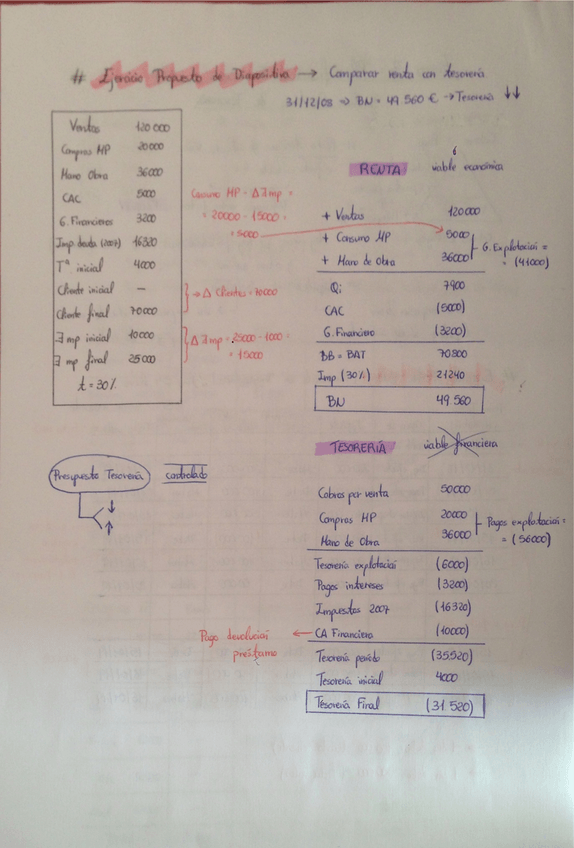 # Ejercicio Propuesto de Diapositiva → Comparar renta con tesorería
31/12/08 ⇒ BN = 49 560 € → Tesorería ↓↓
Ventas 120 000
Compras MP 20000
Mano Obra 36000
CAC 5000
G. Financieros 3200
Imp deuda (2007) 16320
Tª inicial 4000
Cliente inicial —
Cliente final 70000
∃ mp inicial 10000
∃ mp final 25000
t = 30%
Consumo MP - Δ∃mp =
= 20000 - 15000 =
= 5000
→ Δ Clientes = 70000
Δ∃mp = 25000 - 1000 =
= 15000
RENTA viable económica
+ Ventas 120000
+ Consumo MP 5000
+ Mano de Obra 36000
G. Explotación =
= (41000)
Qi 7900
CAC (5000)
G. Financiero (3200)
BB = BAT 70800
Imp (30%) 21240
BN 49.560
TESORERÍA viable financiera
Presupuesto Tesorería controlado
↓
↑
Cobros por venta 50000
Compras MP 20000
Mano de Obra 36000
Pagos explotación =
= (56000)
Tesorería explotación (6000)
Pagos intereses (3200)
Impuestos 2007 (16320)
Pago devolución
préstamo
← CA Financiero (10000)
Tesorería periodo (35520)
Tesorería inicial 4000
Tesorería Final (31 520)